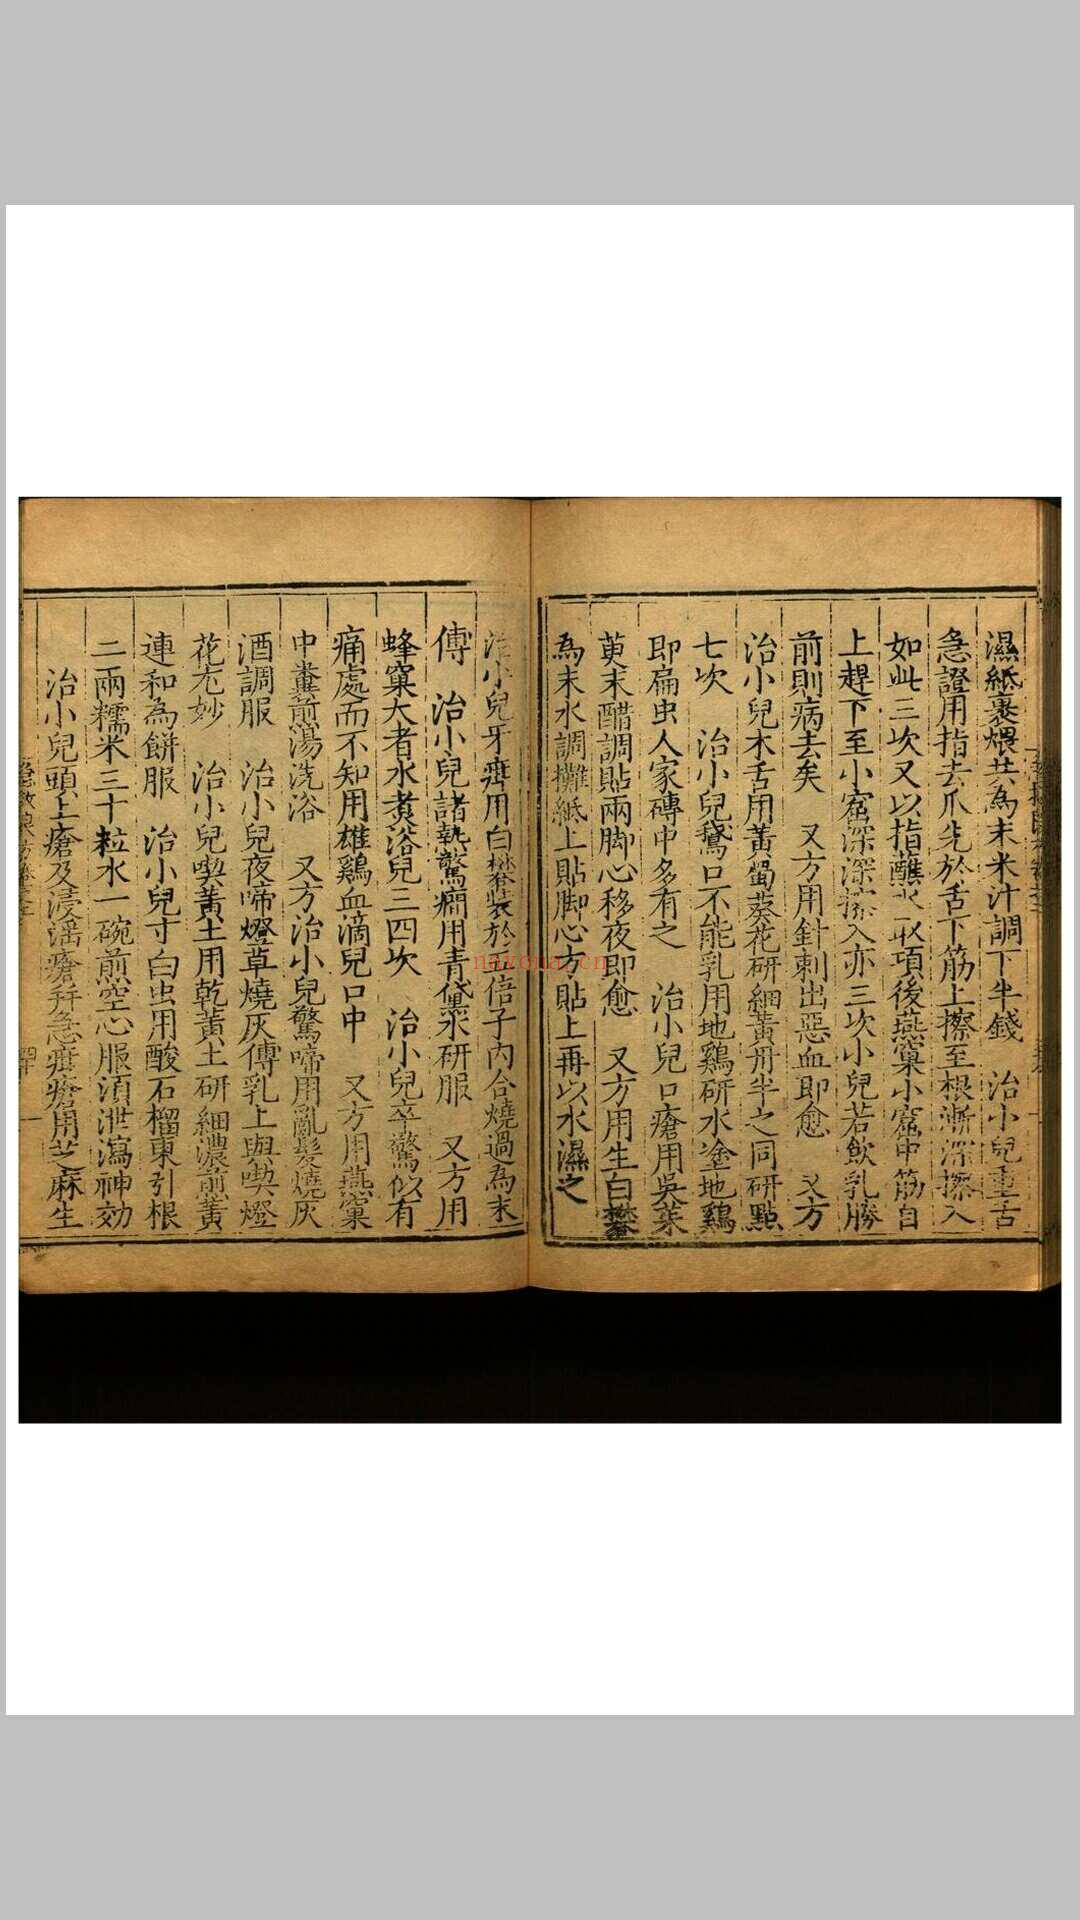 濕紙裹煨共為末米汁調下半錢　治小兒重舌
急證用指去爪先於舌下筋上擦至根漸深擦入
如此三次又以指蘸水取項後燕窠小窩中筋自
上趕下至小窩深深擦入亦三次小兒若飲乳勝
前則病去矣　又方用針刺出惡血即愈　又方
治小兒木舌用黃蜀葵花研細黃丹半之同研點
七次　治小兒鵞口不能乳用地鷄研水塗地鷄
即扁虫人家磚中多有之　治小兒口瘡用吳茱
萸末醋調貼兩脚心移夜即愈　又方用生白礬
為末水調攤紙上貼脚心方貼上再以水濕之
治小兒牙疳用白礬裝於五倍子內合燒過為末
傅　治小兒諸熱驚癎用青黛水研服　又方用
蜂窠大者水煑浴兒三四次　治小兒卒驚似有
痛處而不知用雄鷄血滴兒口中　又方用燕窠
中糞煎湯洗浴　又方治小兒驚啼用亂髮燒灰
酒調服　治小兒夜啼燈草燒灰傅乳上與喫燈
花尤妙　治小兒喫黃土用乾黃土研細濃煎黃
連和為餅服　治小兒寸白虫用酸石榴東引根
二兩糯米三十粒水一碗煎空心服須泄瀉神効
治小兒頭上瘡及浸淫瘡并急疳瘡用芝麻生
nayona.cn